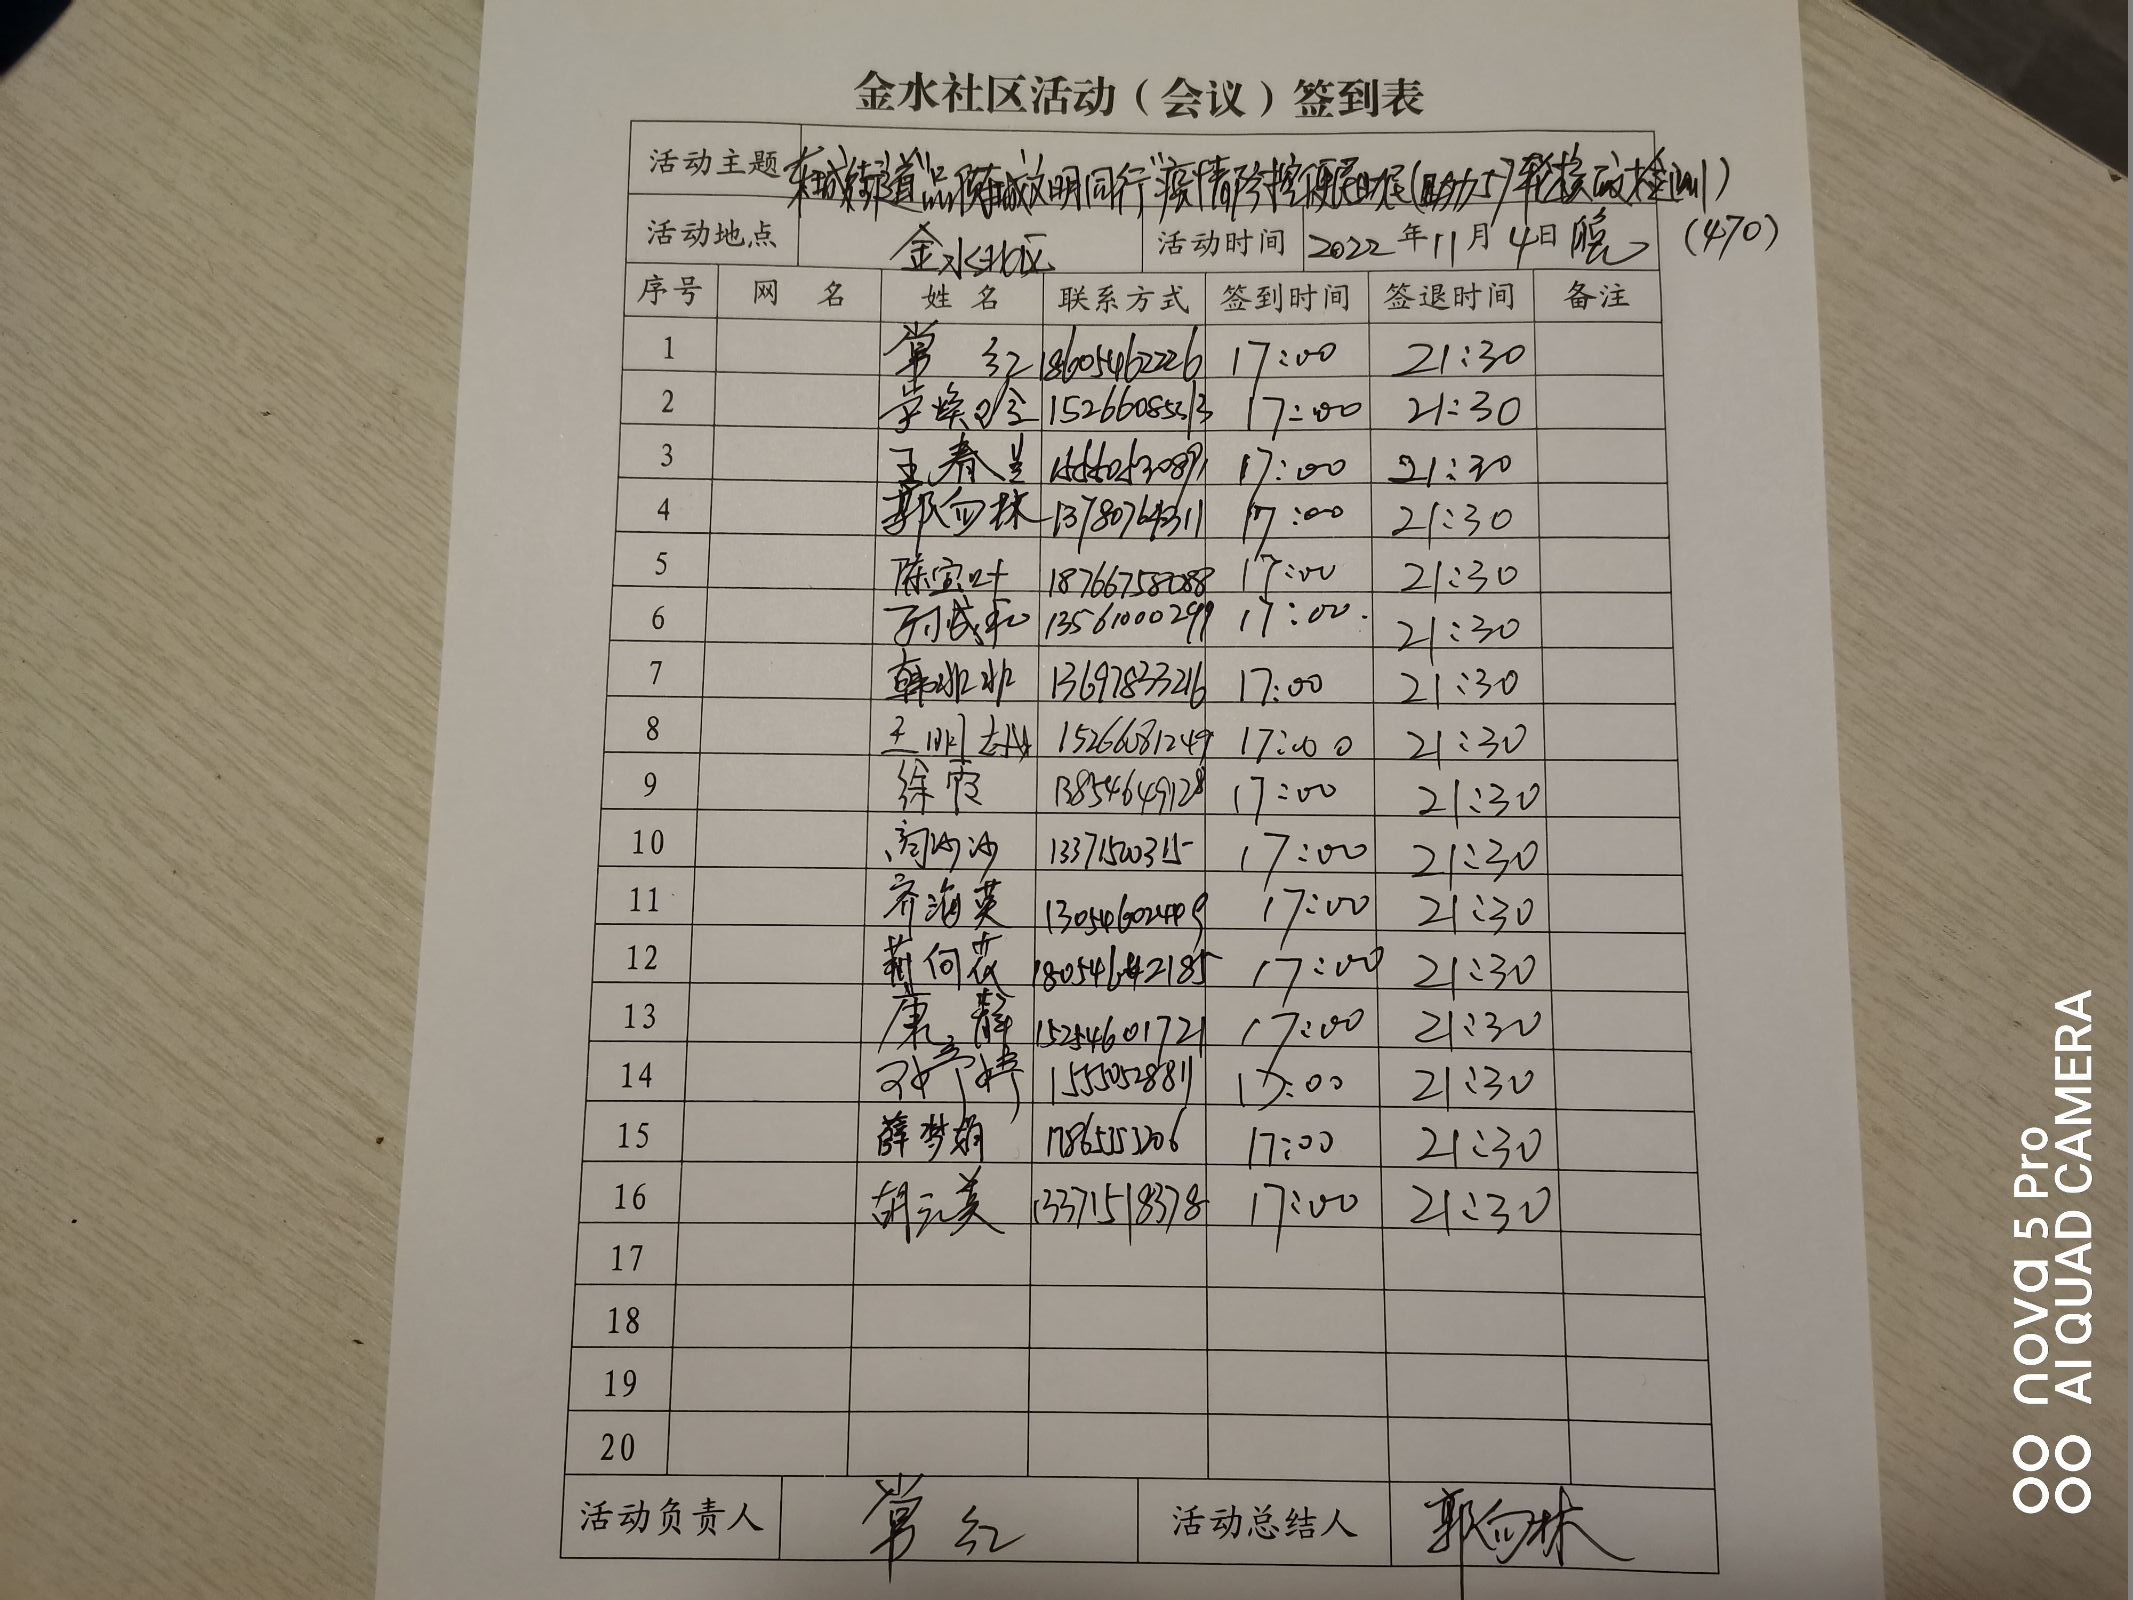 金水社区活动（会议）签到表
活动主题 东城街道"品质东城文明同行"疫情防控便民助民(助力57轮核酸检测)
活动地点 金水社区 活动时间 2022年11月4日晚 (470)
序号 网 名 姓 名 联系方式 签到时间 签退时间 备注
1 常 红 18605462226 17:00 21:30
2 15266085313 17:00 21:30
3 王春兰 17:00 21:30
4 郭向林 13780764311 17:00 21:30
5 陈宝叶 18766758088 17:00 21:30
6 13561000299 17:00 21:30
7 韩非非 13697833216 17:00 21:30
8 王明 15266081249 17:00 21:30
9 徐霞 13854649128 17:00 21:30
10 沙沙 1337150315 17:00 21:30
11 齐海英 13054602449 17:00 21:30
12 荆向花 18054642185 17:00 21:30
13 康静 15254601721 17:00 21:30
14 孙婷婷 15550528811 17:00 21:30
15 薛梦娟 17865353206 17:00 21:30
16 胡元美 13371518378 17:00 21:30
17
18
19
20
活动负责人 常 红 活动总结人 郭向林
nova 5 Pro
AI QUAD CAMERA